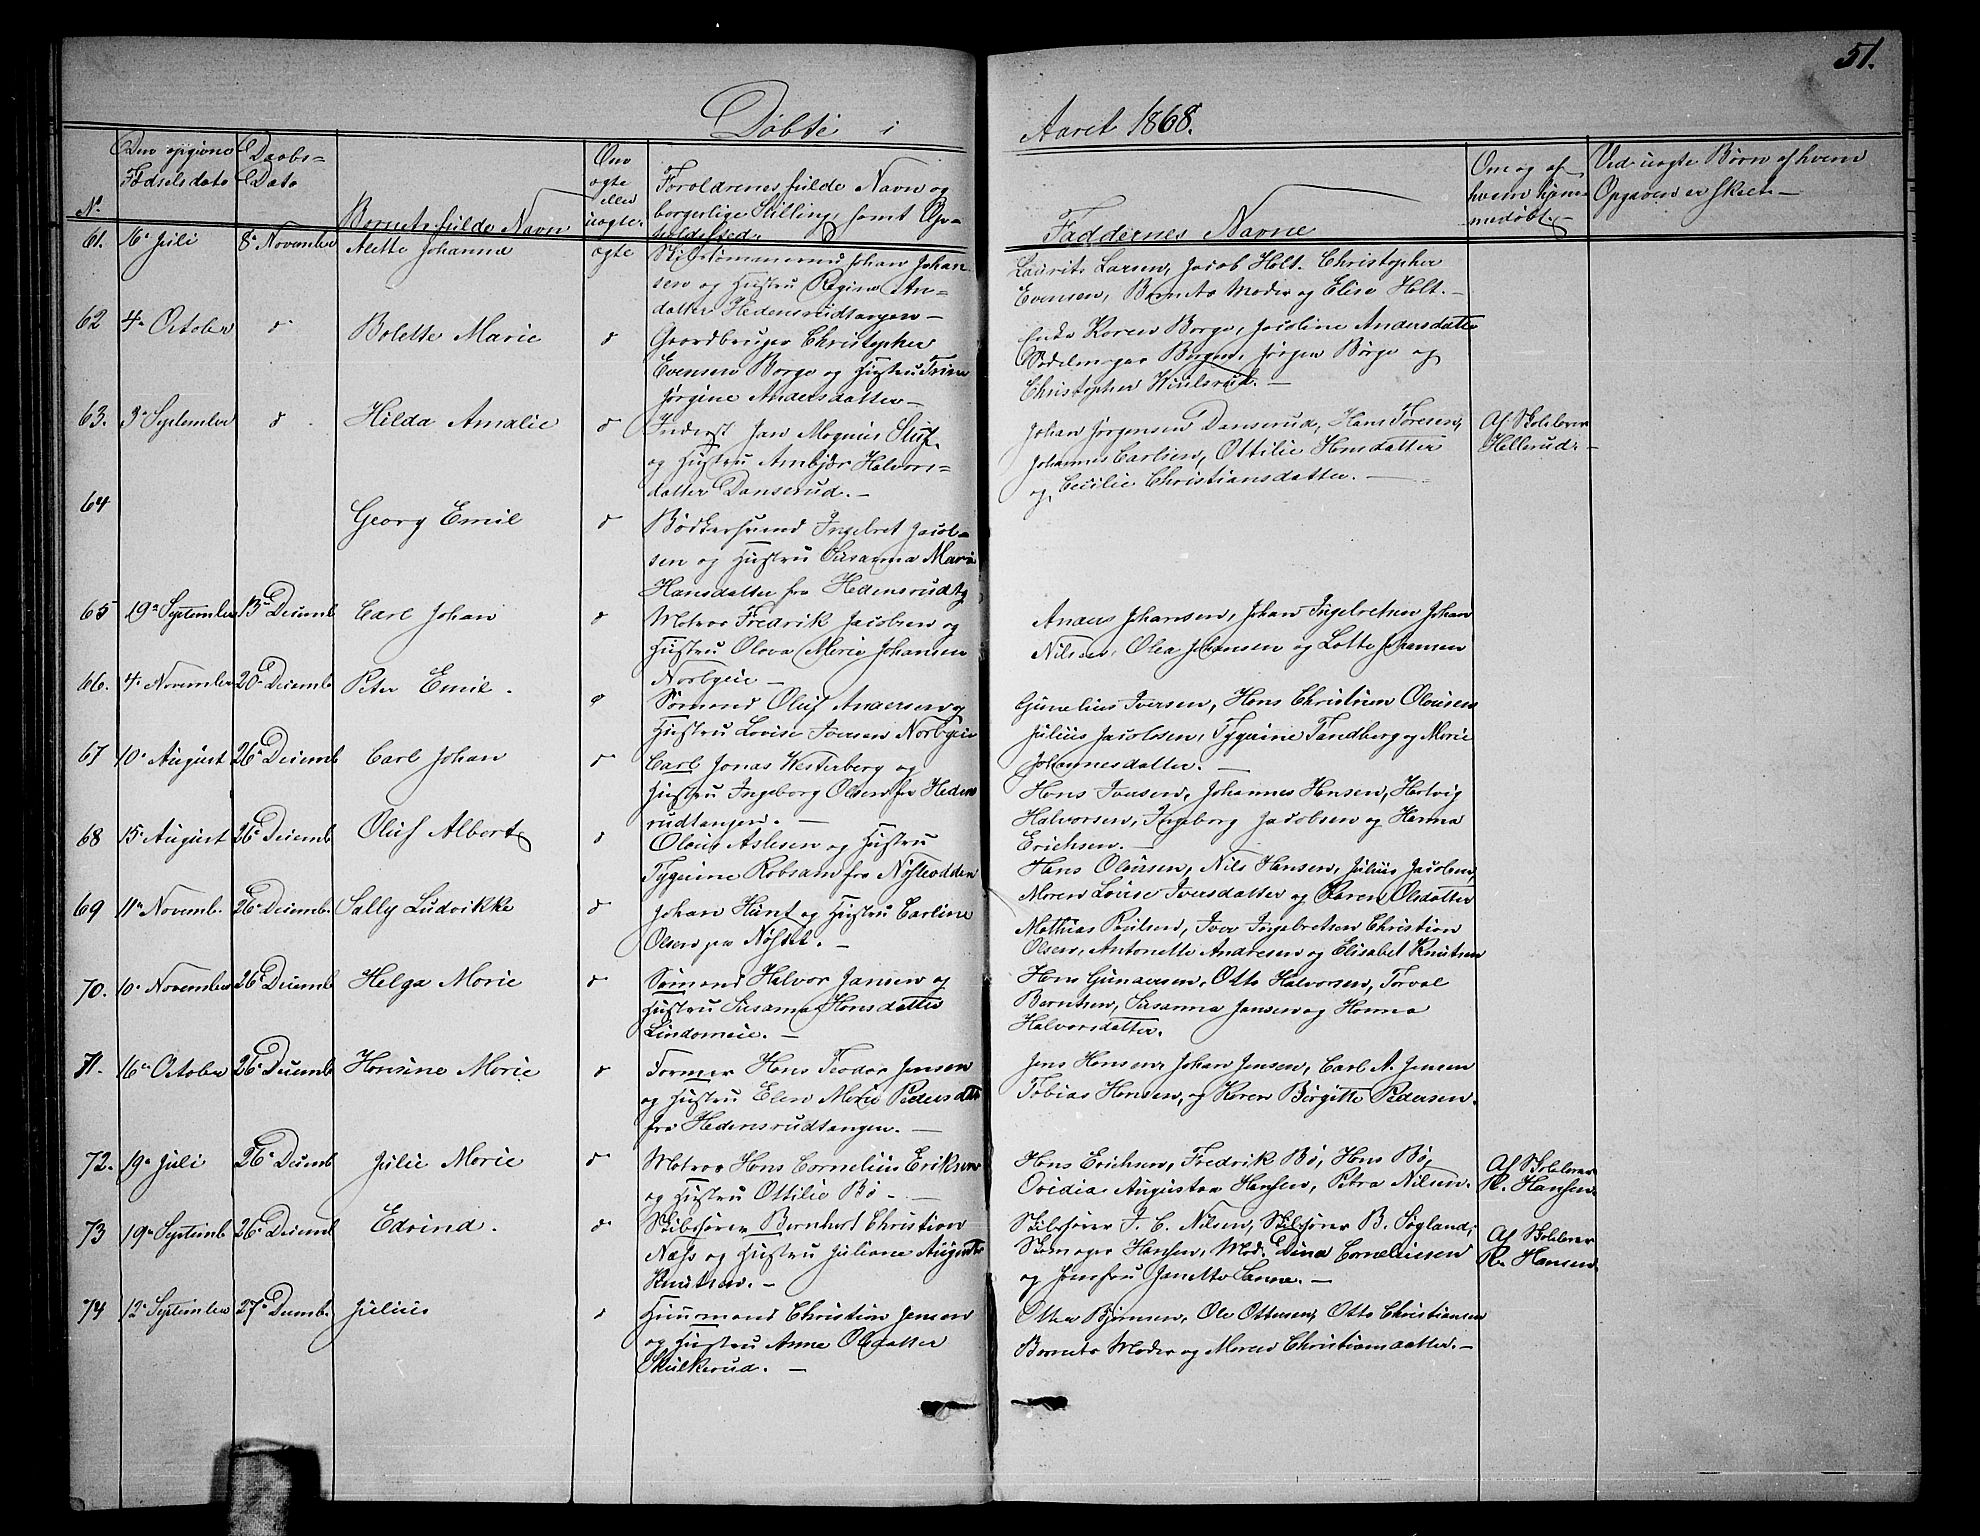 51.
Döbte i Aaret 1868.
No. Den opgivne Fødselsdato Daabs-Dato Barnets fulde Navn Om ægte eller uægte. Forældrenes fulde Navn og borgerlige Stilling, samt Opholdssted. Faddernes Navne Om og af hvem hjemmedøbt. Ved uægte Børn af hvem Opgaven er skeet.
61. 16. Juli 8. November Alette Johanna ægte Skibstømmermand Johan Johan-
sen og Hustru Regine An-
datter Hedensrudtangen
Laurits Larsen, Jacob Holt. Christopher
Evensen, Barnets Moder og Elise Holt.
62 4. October d Bolette Marie d Gaardbruger Christopher
Evensen Borge og Hustru Trine
Jørgine Andersdatter
Enke Karen Borge, Jacoline Andersdatter
Borgen, Jørgen Borge og
Christopher
63. 3. September d Hilda Amalie d Inderst Jan Magnus
og Hustru Anbjør Halvors-
datter Danserud.
Johan Jörgensen Danserud, Hans Toresen,
Johannes Carlsen, Ottilie Hansdatter
og Cecilie Christiansdatter.
Af Skolelærer
Hellerud.
64 Georg Emil d Bödkersvend Ingebret Jacob-
sen og Hustru Susanna Marie
Hansdatter fra Hedensrudtg
65 19. September 13. Decemb Carl Johan d Matros Fredrik Jacobsen og
Hustru Olava Marie Johansen
Norbyeie
Anders Johansen, Johan Ingebretsen Johan
Nilsen, Olea Johansen og Lotte Johansen
66. 4. November 20. Decemb Peter Emil. d Sömand Oluf Andersen og
Hustru Lovise Iversen Norbyeie
Gunelius Iversen, Hans Christian Olausen
Julius Jacobsen, Tyguine Tandberg og Marie
Johannesdatter.
67 10. August 26. Decemb Carl Johan d Carl Jonas Westerberg og
Hustru Ingeborg Olsen fra Hedens
rudtangen.
Hans Iversen, Johannes Hansen, Helvig
Halvorsen, Ingeborg Jacobsen og Hanna
Erichsen.
68 15. August 26. Decemb Oluf Albert d Olaus Aslesen og Hustru
Tyguine Robsam fra Nøsteodden
Hans Olausen, Nils Hansen, Julius Jacobsen,
Maren Lovise Iversdatter og Karen Olsdatter
69 11. Novemb. 26. Decemb. Sally Ludvikke d Johan Hunt og Hustru Carline
Olsen paa Nøstet.
Mathias Paulsen, Iver Ingebretsen Christian
Olsen, Antonette Andresen og Elisabet Knutsen
70. 10. November 26. Decemb Helga Marie d Sömand Halvor Jansen og
Hustru Susanna Hansdatter
Lindomeie.
Hans Gunnersen, Otto Halvorsen, Torval
Berntsen, Susanna Jansen og Hanna
Halvorsdatter.
71. 16. October 26. Decemb Hansine Marie d Former Hans Teodor Jensen
og Hustru Elen Marie Pedersdat
fra Hedensrudtangen.
Jens Hansen, Johan Jensen, Carl A. Jensen
Tobias Hansen, og Karen Birgitte Pedersen.
72. 19. Juli 26. Decemb Julie Marie d Matros Hans Cornelius Eriksen
og Hustru Ottilie Bø
Hans Erichsen, Fredrik Bö, Hans Bö,
Ovidia Augusta Hansen, Petra Nilsen.
Af Skolelærer
R. Hansen.
73 19. Septemb 26. Decemb Edvind. d Skibsfører Bernhard Christian
Næss og Hustru Juliane Augusta
Knutsen.
Skibsfører J. C. Nilsen, Skibsfører B. Søgland,
Skomager Hansen, Mad. Dina Corneliussen
og Jomfru Janette Sanne.
Af Skolelærer
R. Hansen.
74 12. September 27. Decemb. Julius d Huusmand Christian Jensen
og Hustru Anne Olsdatter
Skulkerud.
Otter Bjørnsen, Ole Ottersen, Otto Christiansen
Barnets Moder og Maren Christiansdatter.